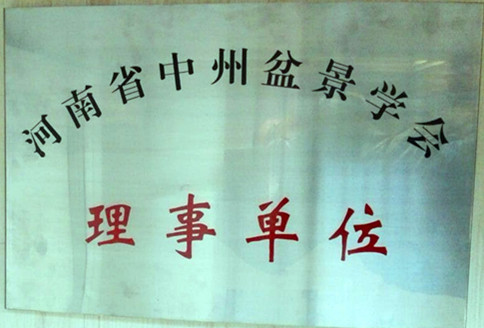 河南省中州盆景学会
理事单位